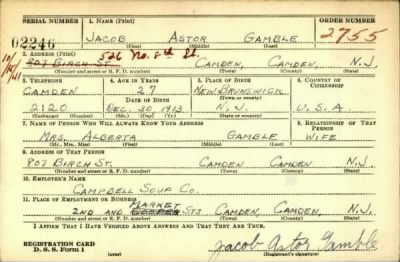 SERIAL NUMBER 1. NAME (Print) ORDER NUMBER
02246 JACOB ASTOR GAMBLE 2755
(First) (Middle) (Last)
2. ADDRESS (Print) 526 No. 8th St.
10/16/41 807 BIRCH ST. CAMDEN, CAMDEN, N.J.
(Number and street or R. F. D. number) (Town) (County) (State)
3. TELEPHONE 4. AGE IN YEARS 5. PLACE OF BIRTH 6. COUNTRY OF CITIZENSHIP
CAMDEN 27 NEW BRUNSWICK
DATE OF BIRTH (Town or county)
2120 DEC. 30, 1913 N.J. U.S.A.
(Exchange) (Number) (Mo.) (Day) (Yr.) (State or country)
7. NAME OF PERSON WHO WILL ALWAYS KNOW YOUR ADDRESS 8. RELATIONSHIP OF THAT PERSON
MRS. ALBERTA GAMBLE WIFE
(Mr., Mrs., Miss) (First) (Middle) (Last)
9. ADDRESS OF THAT PERSON
807 BIRCH ST. CAMDEN CAMDEN N.J.
(Number and street or R. F. D. number) (Town) (County) (State)
10. EMPLOYER'S NAME
CAMPBELL SOUP CO.
11. PLACE OF EMPLOYMENT OR BUSINESS MARKET
2ND AND COOPER STS CAMDEN, CAMDEN, N.J.
(Number and street or R. F. D. number) (Town) (County) (State)
I AFFIRM THAT I HAVE VERIFIED ABOVE ANSWERS AND THAT THEY ARE TRUE.
REGISTRATION CARD
D. S. S. FORM 1 (over) Jacob Astor Gamble
(Registrant's signature)